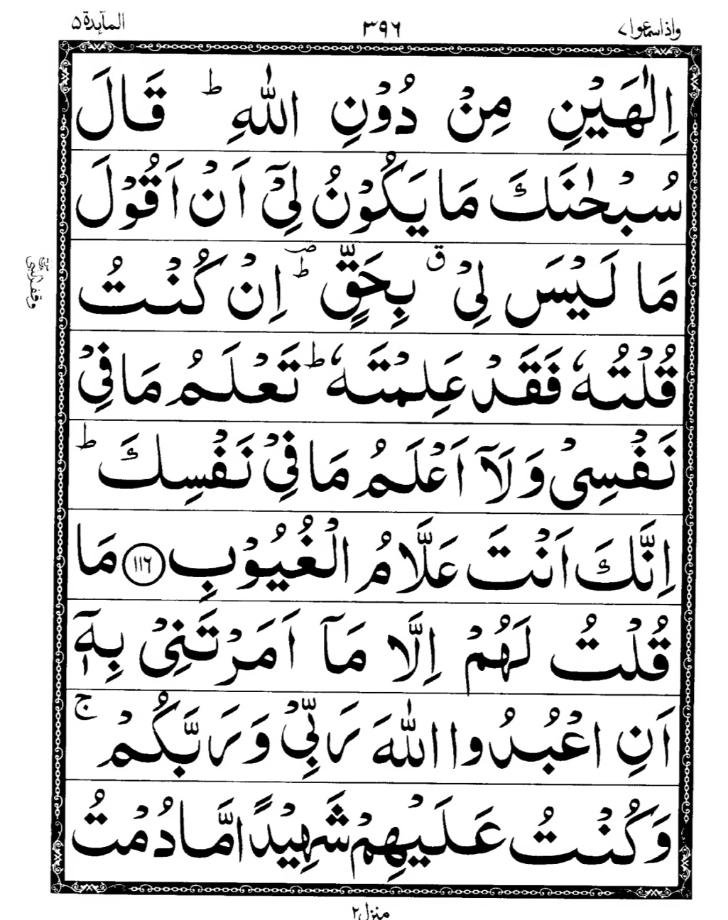 واذاسمعوا ٧ ٣٩٦ المآىدة ٥
اِلٰهَيْنِ مِنْ دُوْنِ اللّٰهِ ؕ قَالَ
سُبْحٰنَكَ مَا يَكُوْنُ لِيْۤ اَنْ اَقُوْلَ
مَا لَيْسَ لِيْ ۗ بِحَقٍّ ؔؕ اِنْ كُنْتُ
قُلْتُهٗ فَقَدْ عَلِمْتَهٗ ؕ تَعْلَمُ مَا فِيْ
نَفْسِيْ وَلَاۤ اَعْلَمُ مَا فِيْ نَفْسِكَ ؕ
اِنَّكَ اَنْتَ عَلَّامُ الْغُيُوْبِ ﴿١١٦﴾ مَا
قُلْتُ لَهُمْ اِلَّا مَاۤ اَمَرْتَنِيْ بِهٖۤ
اَنِ اعْبُدُوا اللّٰهَ رَبِّيْ وَرَبَّكُمْ ۚ
وَكُنْتُ عَلَيْهِمْ شَهِيْدًا مَّا دُمْتُ
منزل ٢